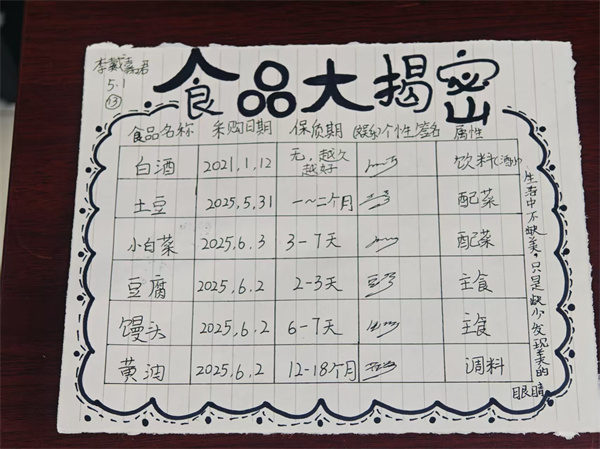 李戴嘉君
5.1
⑬
食品大揭密
食品名称 采购日期 保质期 (娱乐)个性签名 属性
白酒 2021.1.12 无,越久越好 饮料(酒水)
土豆 2025.5.31 一~二个月 配菜
小白菜 2025.6.3 3-7天 配菜
豆腐 2025.6.2 2-3天 主食
馒头 2025.6.2 6-7天 主食
黄油 2025.6.2 12-18个月 调料
生活中不缺美,只是缺少发现美的眼睛